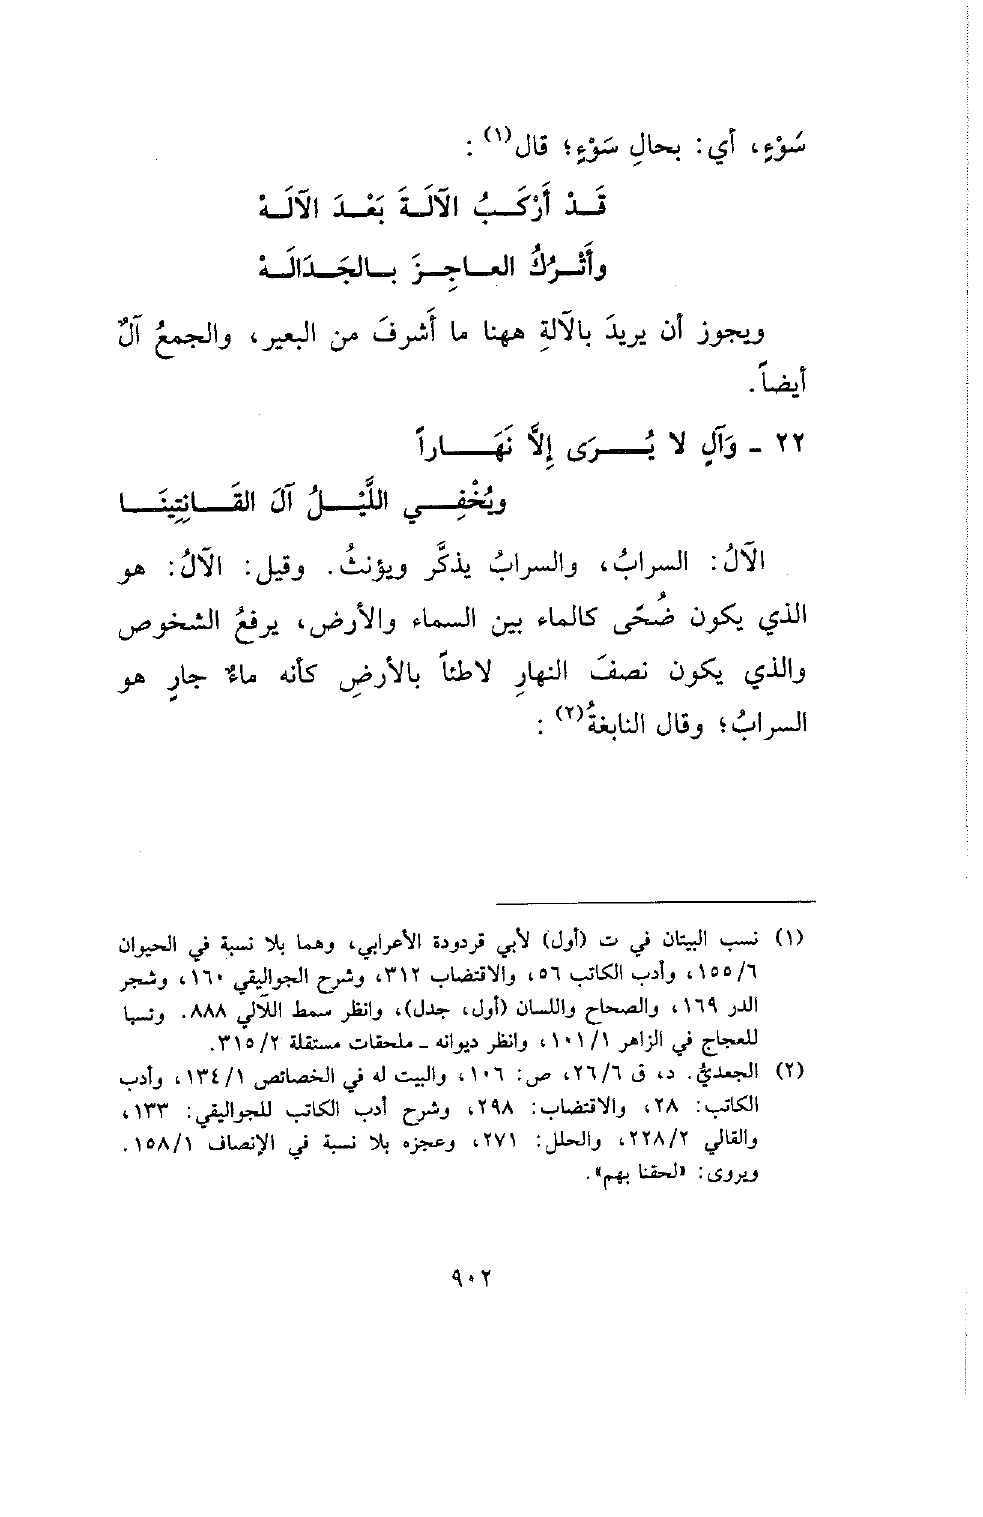 سَوْءٍ، أي: بحالِ سَوْءٍ؛ قال(١) :
قَـدْ أَرْكَـبُ الآلَةَ بَعْـدَ الآلَـهْ
وأَتْـرُكُ العـاجِـزَ بـالجَـدَالَـهْ
ويجوز أن يريدَ بالآلةِ ههنا ما أَشرفَ من البعير، والجمعُ آلٌ
أيضاً.
٢٢ ـ وَآلٍ لا يُــرَى إِلاَّ نَهَــاراً
ويُخْفِـي اللَّيْـلُ آلَ القَـانِتِينَـا
الآلُ: السرابُ، والسرابُ يذكَّر ويؤنثُ. وقيل: الآلُ: هو
الذي يكون ضُحًى كالماء بين السماء والأرض، يرفعُ الشخوص
والذي يكون نصفَ النهارِ لاطئاً بالأرضِ كأنه ماءٌ جارٍ هو
السرابُ؛ وقال النابغةُ(٢) :
(١) نسب البيتان في ت (أول) لأبي قردودة الأعرابي، وهما بلا نسبة في الحيوان
٦/١٥٥، وأدب الكاتب ٥٦، والاقتضاب ٣١٢، وشرح الجواليقي ١٦٠، وشجر
الدر ١٦٩، والصحاح واللسان (أول، جدل)، وانظر سمط اللآلي ٨٨٨. ونسبا
للعجاج في الزاهر ١/١٠١، وانظر ديوانه ـ ملحقات مستقلة ٢/٣١٥.
(٢) الجعديّ. د، ق ٦/٢٦، ص: ١٠٦، والبيت له في الخصائص ١/١٣٤، وأدب
الكاتب: ٢٨، والاقتضاب: ٢٩٨، وشرح أدب الكاتب للجواليقي: ١٣٣،
والقالي ٢/٢٢٨، والحلل: ٢٧١، وعجزه بلا نسبة في الإنصاف ١/١٥٨.
ويروى: «لحقنا بهم».
٩٠٢